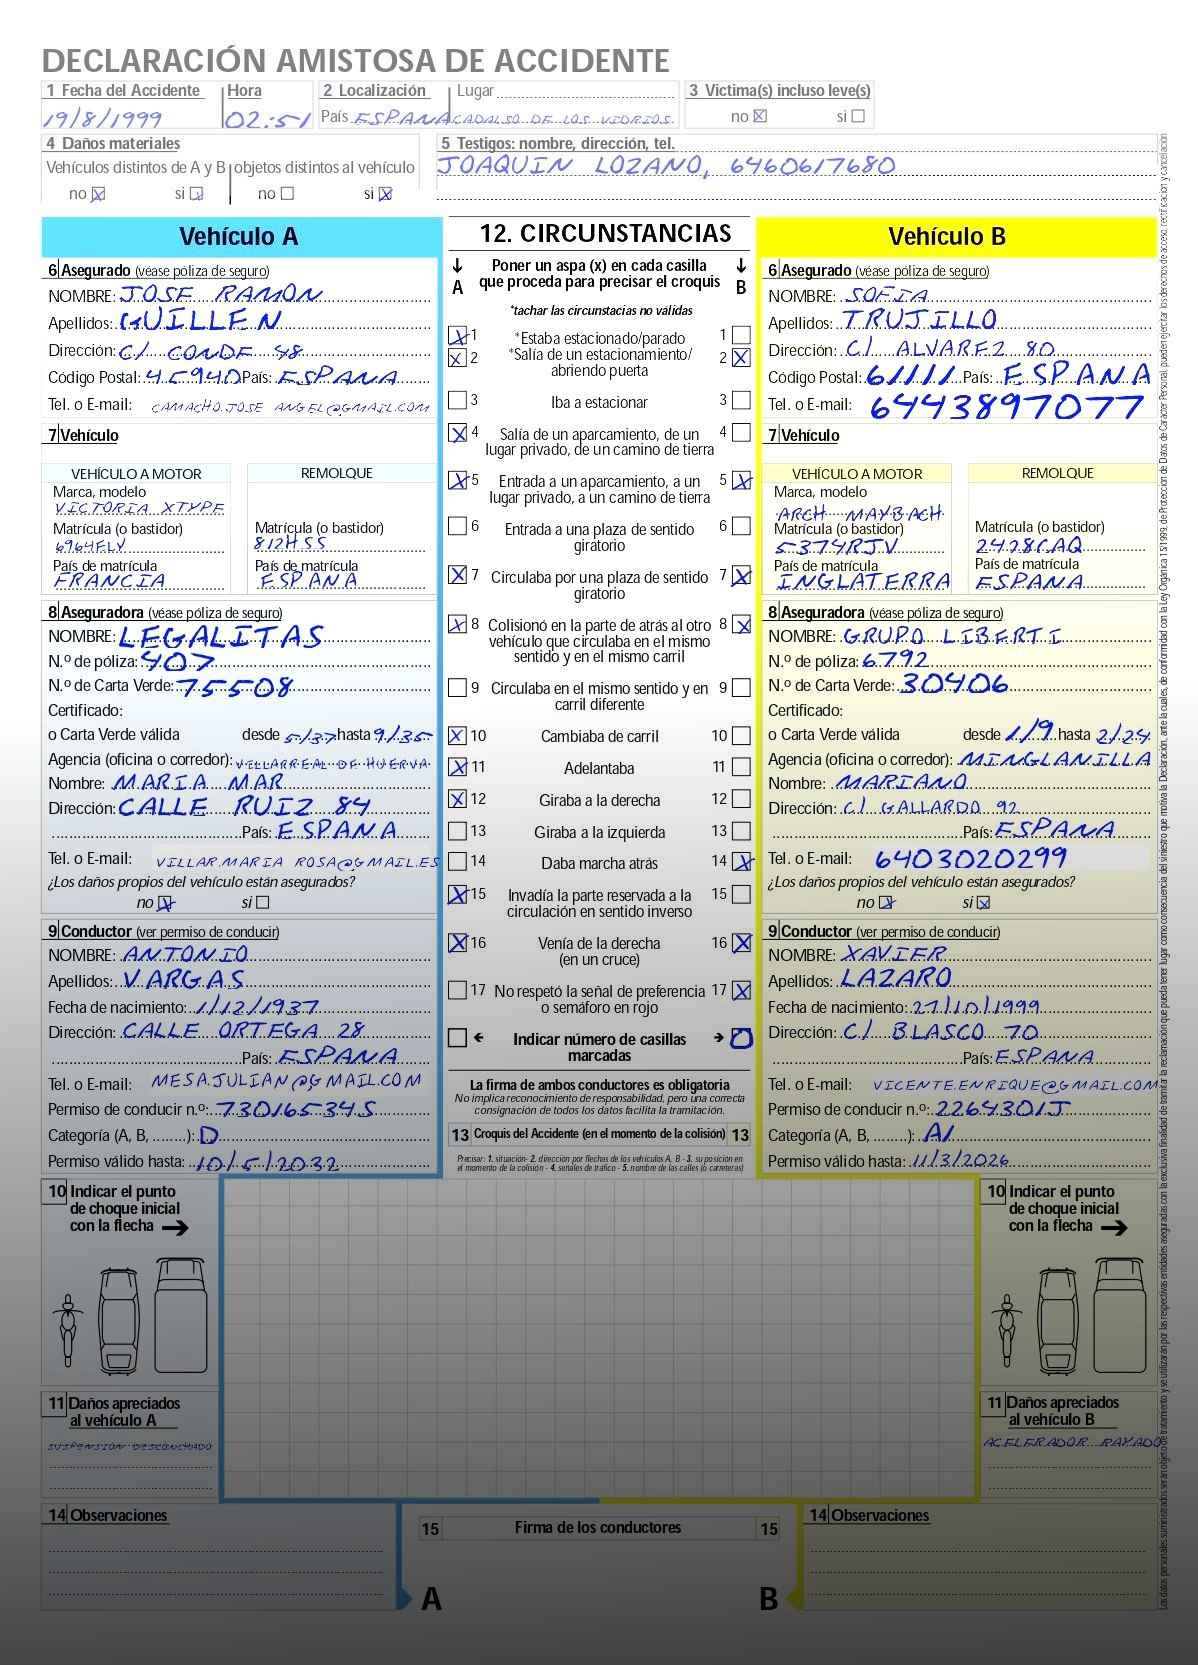 DECLARACIÓN AMISTOSA DE ACCIDENTE
1 Fecha del Accidente Hora 2 Localización Lugar 3 Victima(s) incluso leve(s)
19/8/1999 02:51 País ESPANA CADALSO DE LOS VIDRIOS no X si
4 Daños materiales 5 Testigos: nombre, dirección, tel.
Vehículos distintos de A y B objetos distintos al vehículo JOAQUIN LOZANO, 6460617680
no X si X no si X
Vehículo A
6 Asegurado (véase póliza de seguro)
NOMBRE: JOSE RAMON
Apellidos: GUILLEN
Dirección: C/ CONDE 48
Código Postal: 45940 País: ESPANA
Tel. o E-mail: CAMACHO.JOSE ANGEL@GMAIL.COM
7 Vehículo
VEHÍCULO A MOTOR REMOLQUE
Marca, modelo
VICTORIA XTYPE
Matrícula (o bastidor) Matrícula (o bastidor)
6964FLV 812HSS
País de matrícula País de matrícula
FRANCIA ESPANA
8 Aseguradora (véase póliza de seguro)
NOMBRE: LEGALITAS
N.º de póliza: 407
N.º de Carta Verde: 75508
Certificado:
o Carta Verde válida desde 5/37 hasta 9/35
Agencia (oficina o corredor): VILLARREAL DE HUERVA
Nombre: MARIA MAR
Dirección: CALLE RUIZ 84
País: ESPANA
Tel. o E-mail: VILLAR.MARIA ROSA@GMAIL.ES
¿Los daños propios del vehículo están asegurados?
no X si
9 Conductor (ver permiso de conducir)
NOMBRE: ANTONIO
Apellidos: VARGAS
Fecha de nacimiento: 1/12/1937
Dirección: CALLE ORTEGA 28
País: ESPANA
Tel. o E-mail: MESA.JULIAN@GMAIL.COM
Permiso de conducir n.º: 73016534S
Categoría (A, B, ........): D
Permiso válido hasta: 10/5/2032
12. CIRCUNSTANCIAS
Poner un aspa (x) en cada casilla
A que proceda para precisar el croquis B
*tachar las circunstacias no válidas
X 1 *Estaba estacionado/parado 1
X 2 *Salía de un estacionamiento/ 2 X
abriendo puerta
3 Iba a estacionar 3
X 4 Salía de un aparcamiento, de un 4
lugar privado, de un camino de tierra
X 5 Entrada a un aparcamiento, a un 5 X
lugar privado, a un camino de tierra
6 Entrada a una plaza de sentido 6
giratorio
X 7 Circulaba por una plaza de sentido 7 X
giratorio
X 8 Colisionó en la parte de atrás al otro 8 X
vehículo que circulaba en el mismo
sentido y en el mismo carril
9 Circulaba en el mismo sentido y en 9
carril diferente
X 10 Cambiaba de carril 10
X 11 Adelantaba 11
X 12 Giraba a la derecha 12
13 Giraba a la izquierda 13
14 Daba marcha atrás 14 X
X 15 Invadía la parte reservada a la 15
circulación en sentido inverso
X 16 Venía de la derecha 16 X
(en un cruce)
17 No respetó la señal de preferencia 17 X
o semáforo en rojo
Indicar número de casillas 0
marcadas
La firma de ambos conductores es obligatoria
No implica reconocimiento de responsabilidad, pero una correcta
consignación de todos los datos facilita la tramitación.
13 Croquis del Accidente (en el momento de la colisión) 13
Precisar: 1. situación- 2. dirección por flechas de los vehículos A, B - 3. su posición en
el momento de la colisión - 4. señales de tráfico - 5. nombre de las calles (o carreteras)
Vehículo B
6 Asegurado (véase póliza de seguro)
NOMBRE: SOFIA
Apellidos: TRUJILLO
Dirección: C/ ALVAREZ 80
Código Postal: 61111 País: ESPANA
Tel. o E-mail: 6443897077
7 Vehículo
VEHÍCULO A MOTOR REMOLQUE
Marca, modelo
ARCH MAYBACH
Matrícula (o bastidor) Matrícula (o bastidor)
5374RJV 2428CAQ
País de matrícula País de matrícula
INGLATERRA ESPANA
8 Aseguradora (véase póliza de seguro)
NOMBRE: GRUPO LIBERTI
N.º de póliza: 6792
N.º de Carta Verde: 30406
Certificado:
o Carta Verde válida desde 1/9 hasta 2/24
Agencia (oficina o corredor): MINGLANILLA
Nombre: MARIANO
Dirección: C/ GALLARDO 92
País: ESPANA
Tel. o E-mail: 6403020299
¿Los daños propios del vehículo están asegurados?
no X si X
9 Conductor (ver permiso de conducir)
NOMBRE: XAVIER
Apellidos: LAZARO
Fecha de nacimiento: 27/10/1999
Dirección: C/ BLASCO 70
País: ESPANA
Tel. o E-mail: VICENTE.ENRIQUE@GMAIL.COM
Permiso de conducir n.º: 2264301J
Categoría (A, B, ........): A1
Permiso válido hasta: 11/3/2026
10 Indicar el punto
de choque inicial
con la flecha
10 Indicar el punto
de choque inicial
con la flecha
11 Daños apreciados
al vehículo A
SUSPENSION DESCONCHADO
11 Daños apreciados
al vehículo B
ACELERADOR RAYADO
14 Observaciones
15 Firma de los conductores 15
A B
14 Observaciones